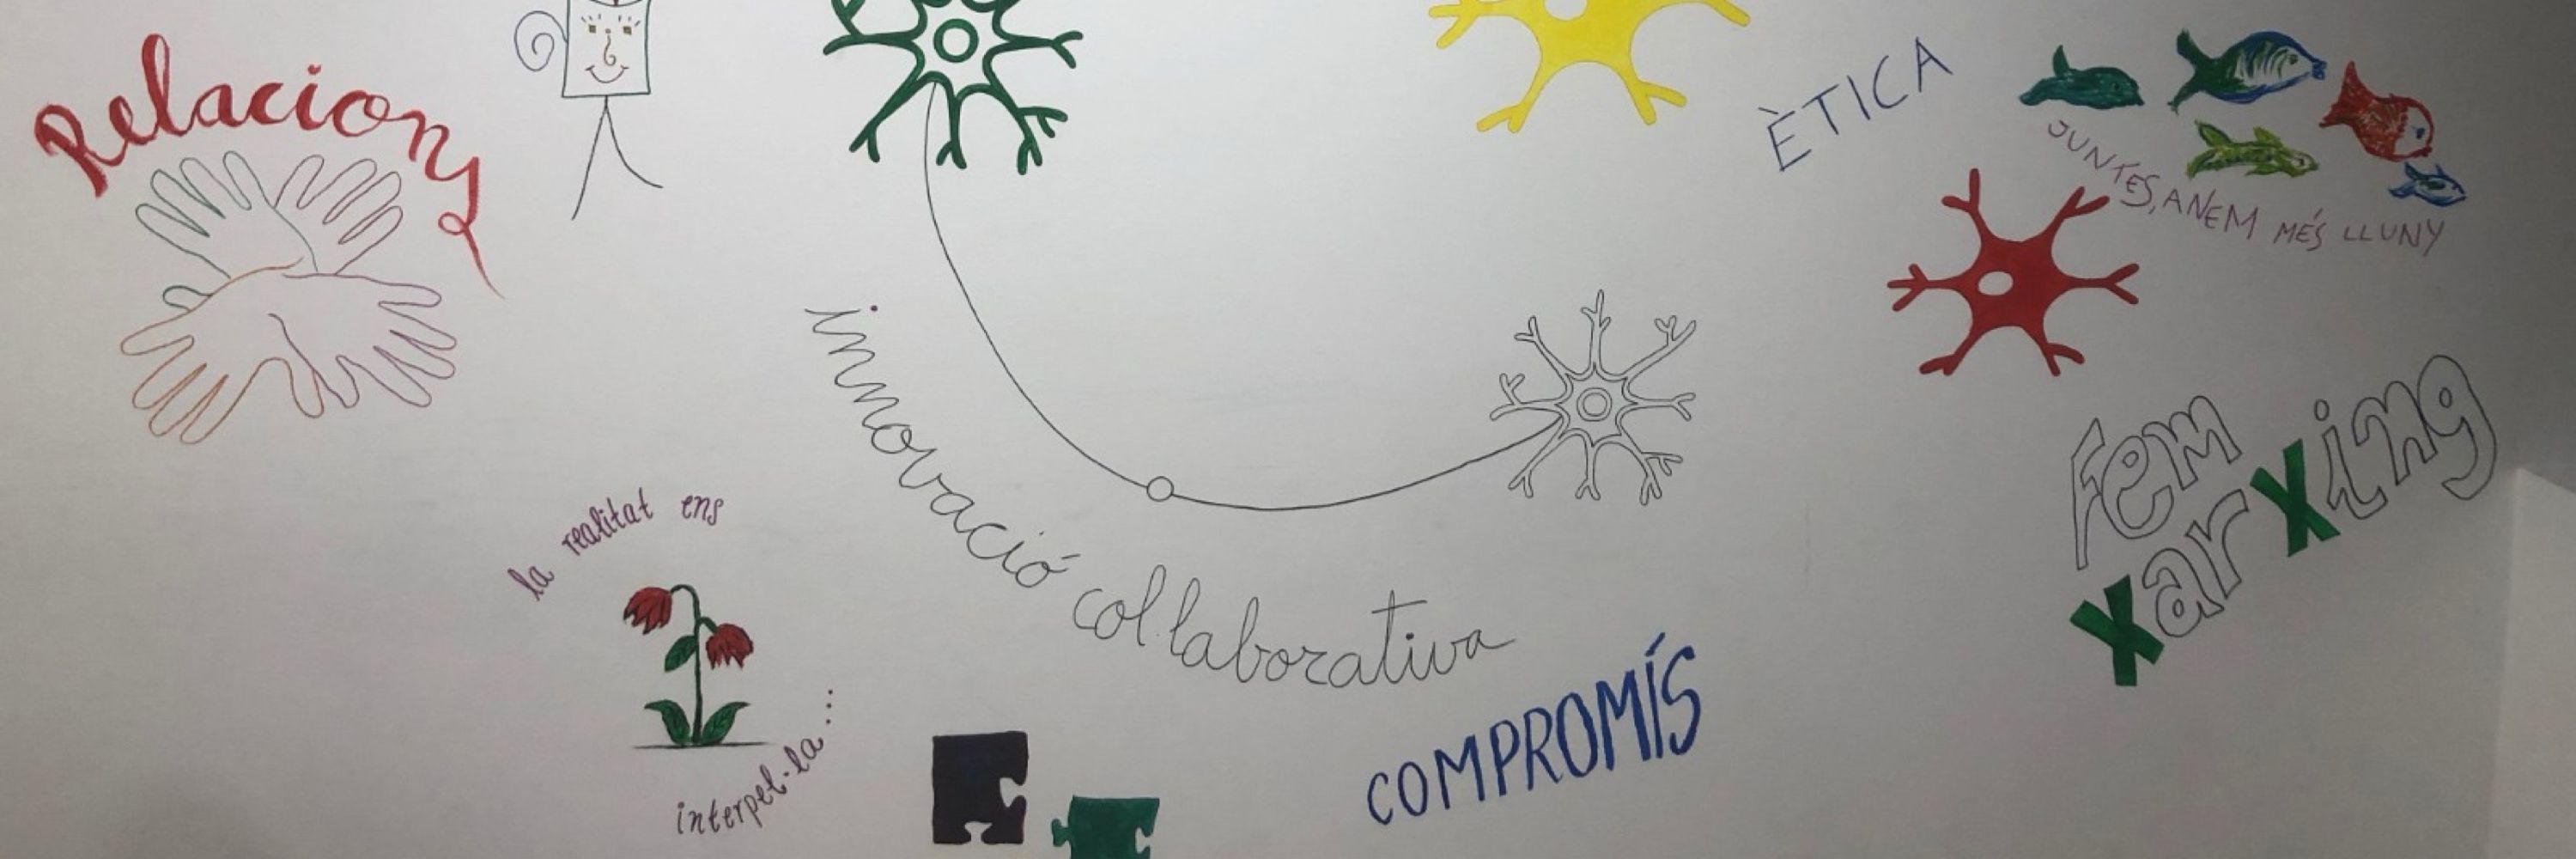 Relacions
ÈTICA
JUNTES, ANEM MÉS LLUNY
innovació col·laborativa
Fem
xarXing
la realitat ens
interpel·la...
COMPROMÍS